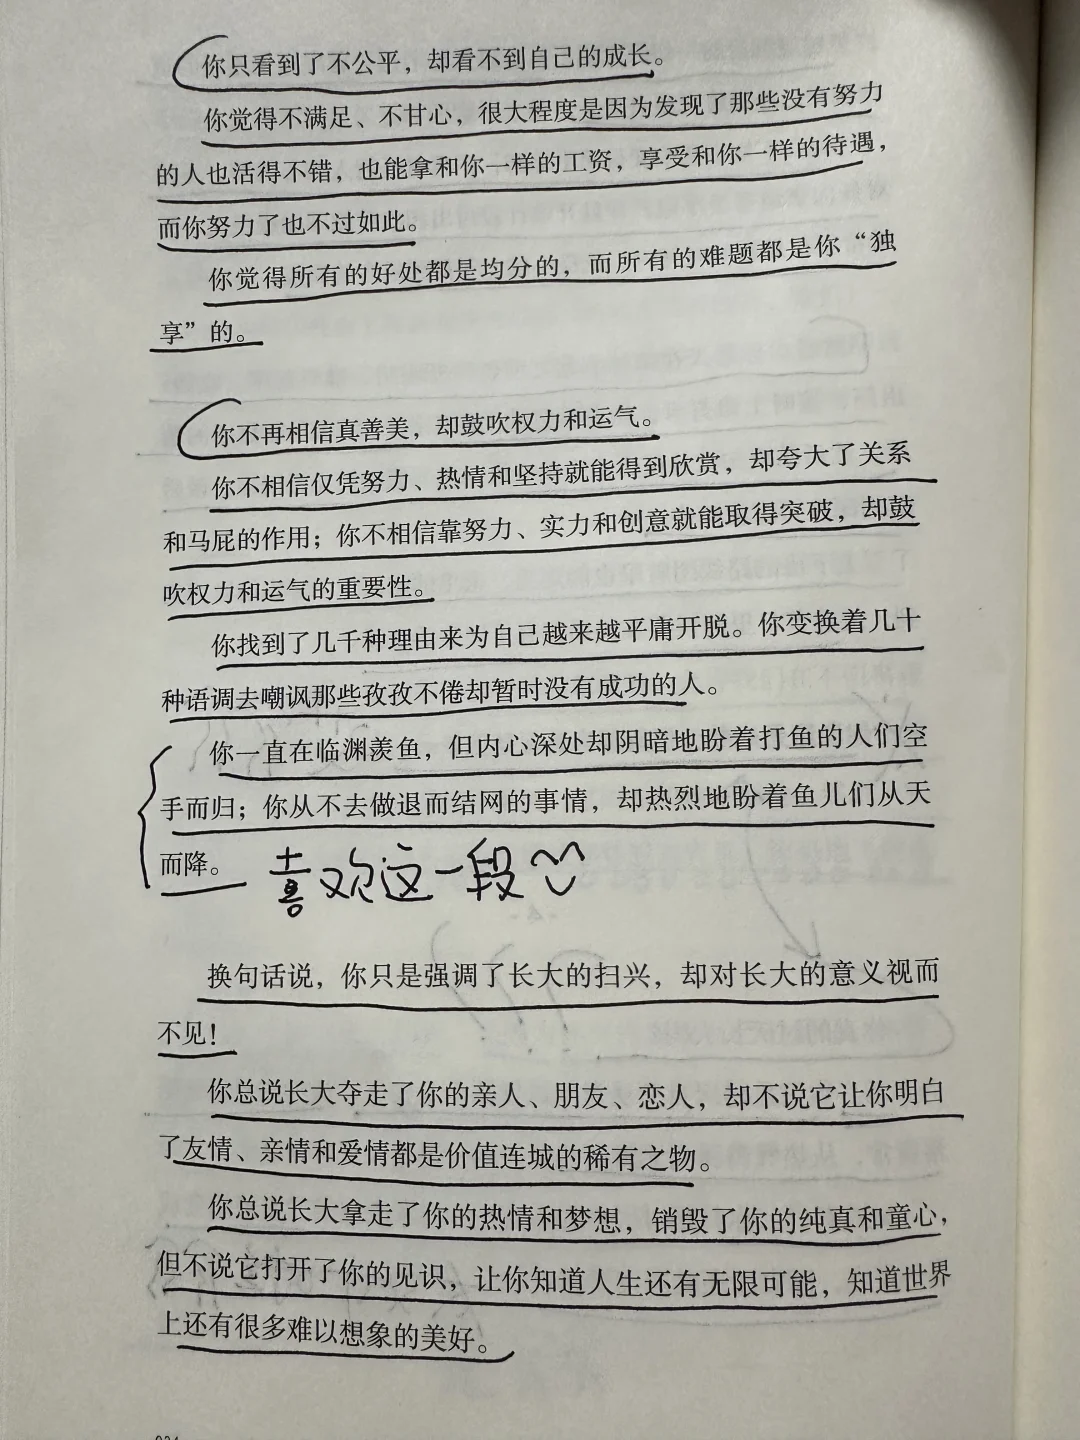 你只看到了不公平，却看不到自己的成长。
你觉得不满足、不甘心，很大程度是因为发现了那些没有努力
的人也活得不错，也能拿和你一样的工资，享受和你一样的待遇，
而你努力了也不过如此。
你觉得所有的好处都是均分的，而所有的难题都是你“独
享”的。
你不再相信真善美，却鼓吹权力和运气。
你不相信仅凭努力、热情和坚持就能得到欣赏，却夸大了关系
和马屁的作用；你不相信靠努力、实力和创意就能取得突破，却鼓
吹权力和运气的重要性。
你找到了几千种理由来为自己越来越平庸开脱。你变换着几十
种语调去嘲讽那些孜孜不倦却暂时没有成功的人。
你一直在临渊羡鱼，但内心深处却阴暗地盼着打鱼的人们空
手而归；你从不去做退而结网的事情，却热烈地盼着鱼儿们从天
而降。 喜欢这一段
换句话说，你只是强调了长大的扫兴，却对长大的意义视而
不见！
你总说长大夺走了你的亲人、朋友、恋人，却不说它让你明白
了友情、亲情和爱情都是价值连城的稀有之物。
你总说长大拿走了你的热情和梦想，销毁了你的纯真和童心，
但不说它打开了你的见识，让你知道人生还有无限可能，知道世界
上还有很多难以想象的美好。